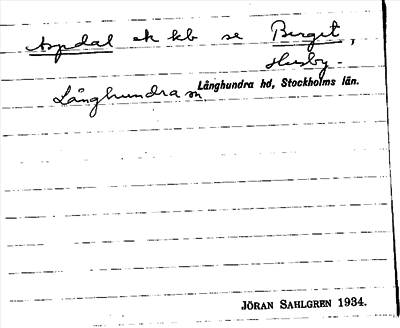 Aspdal ek kb se Birgit,
Husby-
Långhundra sn
Långhundra hd, Stockholms län.
JÖRAN SAHLGREN 1934.